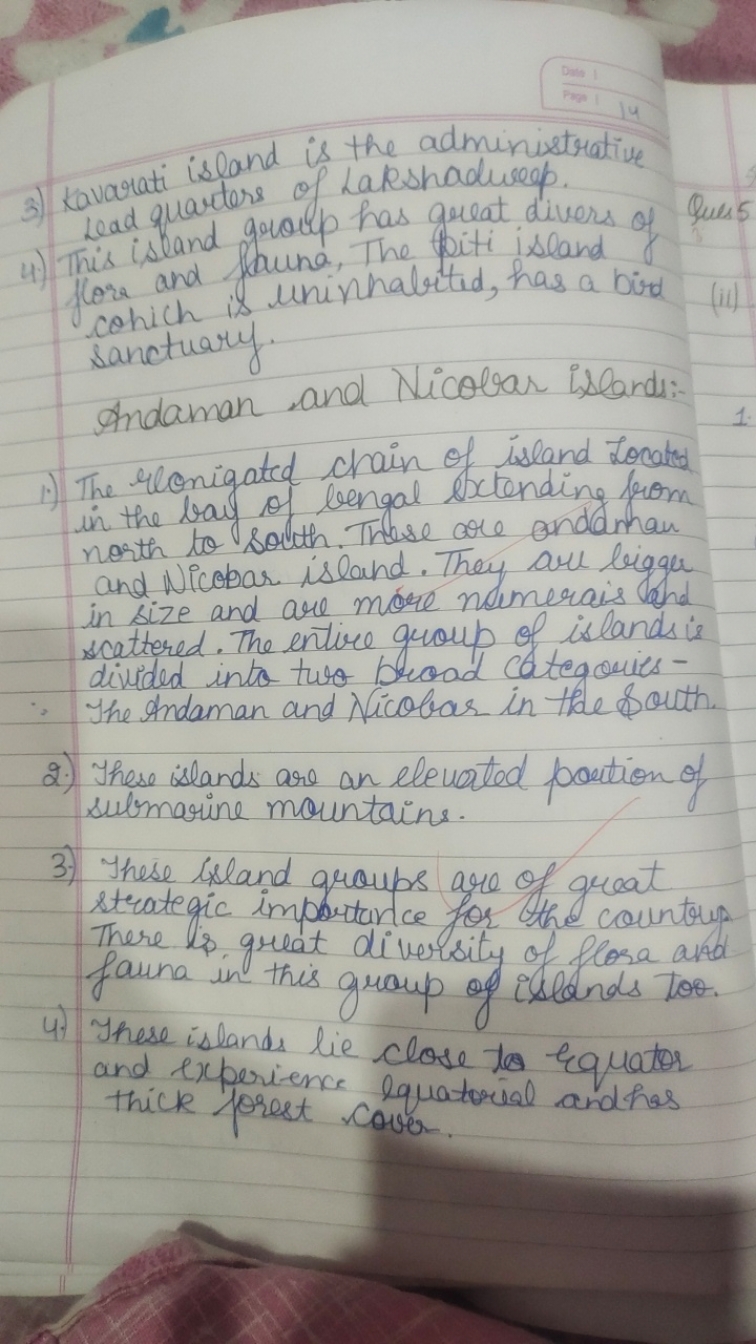 Date
Page 14
3) Kavarati island is the administrative
Lead quarters of Lakshadweep.
4) This island group has great divers of
flora and fauna, The Piti island
cohich is uninhabited, has a bird
sanctuary.
Andaman and Nicobar islands:-
1.) The elonigated chain of island Located
in the bay of bengal extending from
north to south. These are andaman
and Nicobar island. They are bigger
in size and are more numerais and
scattered. The entire group of islands is
divided into two broad categories-
The Andaman and Nicobar in the South.
2.) These islands are an elevated portion of
submarine mountains.
3.) These island groups are of great
strategic importance for the country
There is great diversity of flora and
fauna in this group of islands too.
4.) These islands lie close to Equator
and experience equatorial and has
thick forest cover.
Ques 5
(ii)
1.